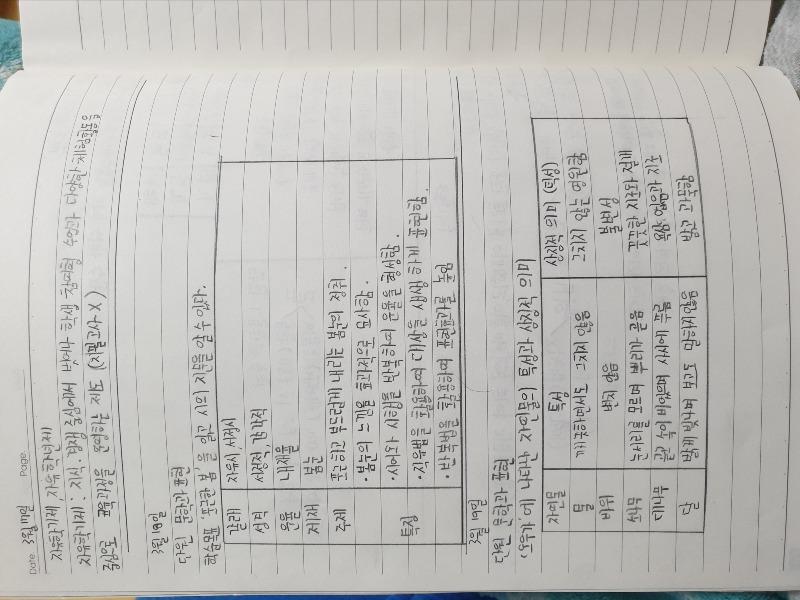 Date 3월 17일 Page
자유학기제, 자유학년제
자유학기제 : 지식·경쟁 중심에서 벗어나 학생 참여형 수업과 다양한 체험활동을
중심으로 교육과정을 운영하는 제도 (지필고사 X)
3월 18일
단원 문학과 표현
학습목표 '포근한 봄'을 읽고 시의 기본을 알 수 있다.
갈래 자유시, 서정시
성격 서정적, 감각적
운율 내재율
제재 봄눈
주제 포근하고 부드럽게 내리는 봄눈의 정취.
특징 · 봄눈의 느낌을 효과적으로 묘사함.
· 시어와 시행을 반복하여 운율을 형성함.
· 직유법을 활용하여 대상을 생생하게 표현함.
· 반복법을 활용하여 표현효과를 높임
3월 19일
단원 문학과 표현
'오우가'에 나타난 자연물의 특성과 상징적 의미
자연물 특성 상징적 의미 (덕성)
물 깨끗하면서도 그치지 않음 그치지 않는 영원함
바위 변치 않음 불변성
소나무 눈서리를 모르며 뿌리가 곧음
대나무 곧고 속이 비었으며 사시에 푸름
달 밝게 빛나며 보고도 말하지않음 밝음과 과묵함